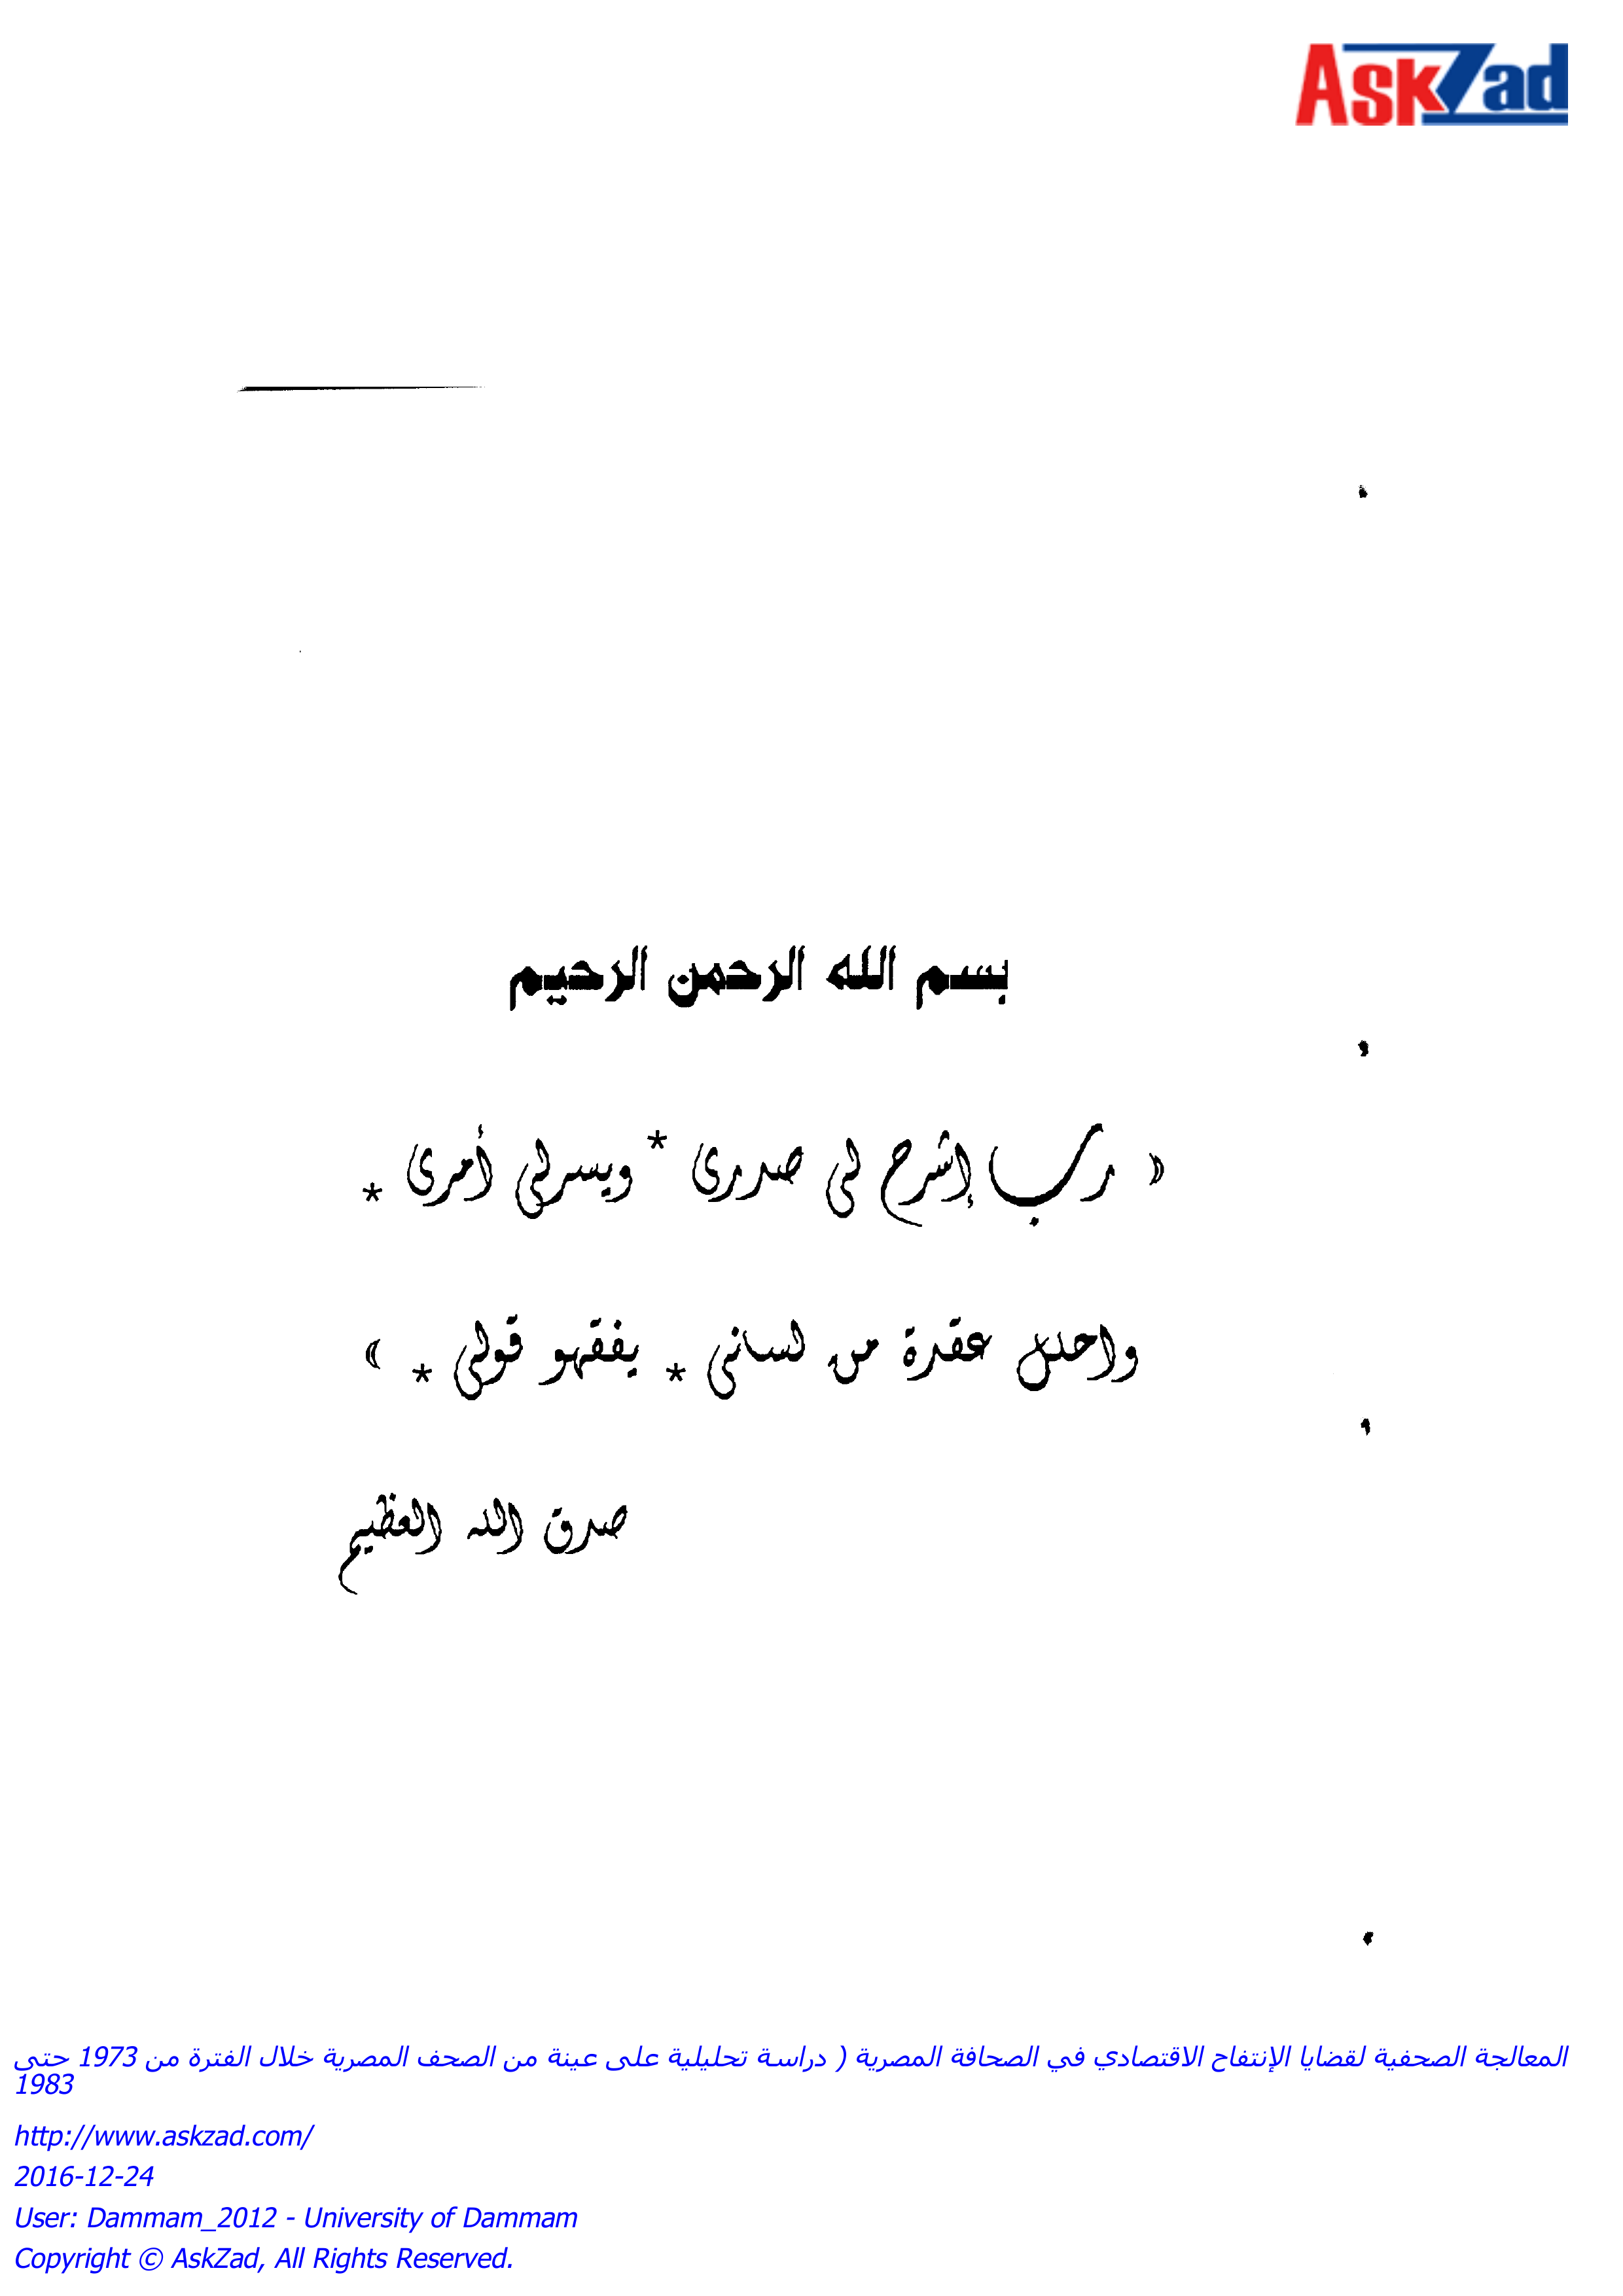 AskZad
بسم الله الرحمن الرحيم
« رب إشرح لى صدرى * ويسرلى أمرى *
واحلل عقدة من لسانى * يفقهو قولى * »
صدق الله العظيم
المعالجة الصحفية لقضايا الإنتفاح الاقتصادي في الصحافة المصرية ( دراسة تحليلية على عينة من الصحف المصرية خلال الفترة من 1973 حتى
1983
http://www.askzad.com/
2016-12-24
User: Dammam_2012 - University of Dammam
Copyright © AskZad, All Rights Reserved.